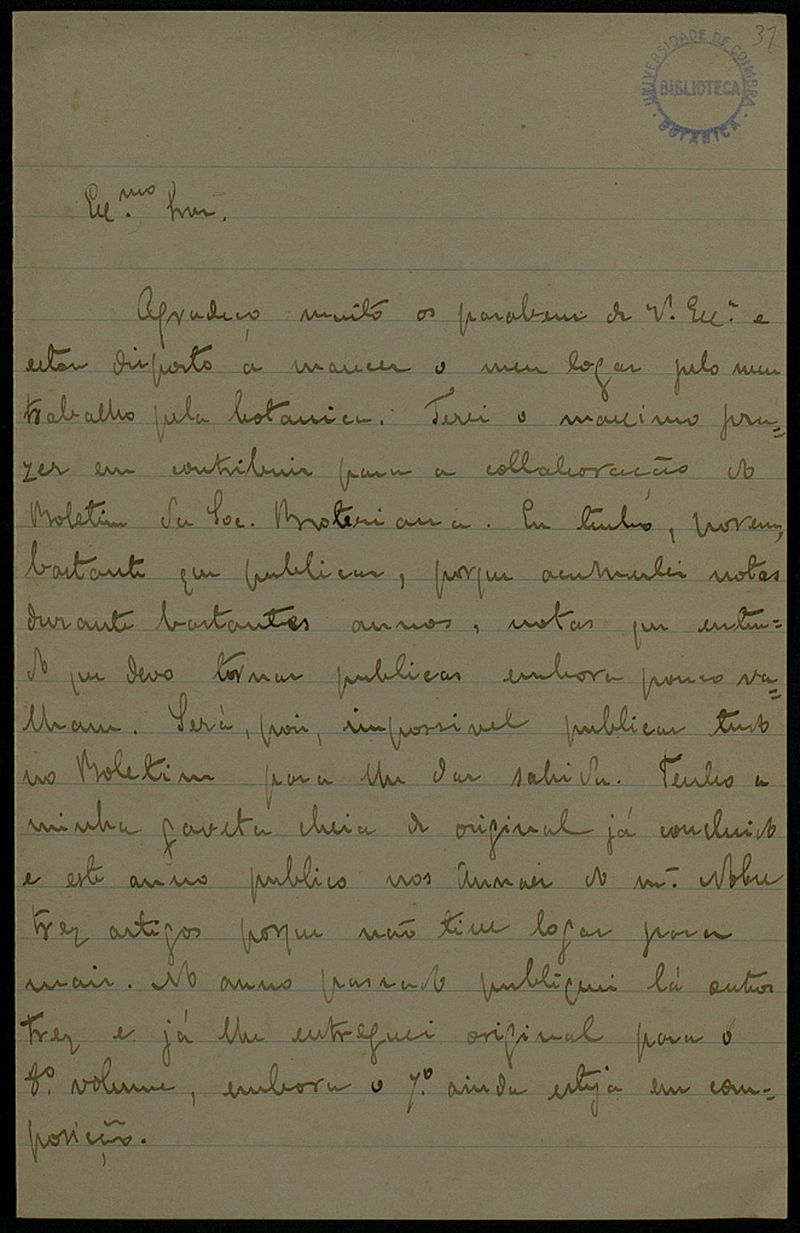 37
UNIVERSIDADE DE COIMBRA
BIBLIOTECA
BOTANICA
Ex.mo Snr.
Agradeço muito os parabens de V. Ex.a e
estou disposto a o meu logar pelo meu
trabalho pela botanica. Terei o maximo pra=
zer em contribuir para a collaboração do
Boletim da Soc. Broteriana. Eu tenho, porem,
bastante que publicar, porque acumulei notas
durante bastantes annos, notas que enten=
do que devo tornar publicas embora pouco va=
lham. Será, pois, impossivel publicar tudo
no Boletim para lhe dar sahida. Tenho a
minha gaveta cheia de original já concluido
e este anno publico nos Annaes do Nobre
trez artigos porque não tive logar para
mais. No anno passado publiquei lá outros
trez e já lhe entreguei original para o
8.º volume, embora o 7.º ainda esteja em com=
posição.